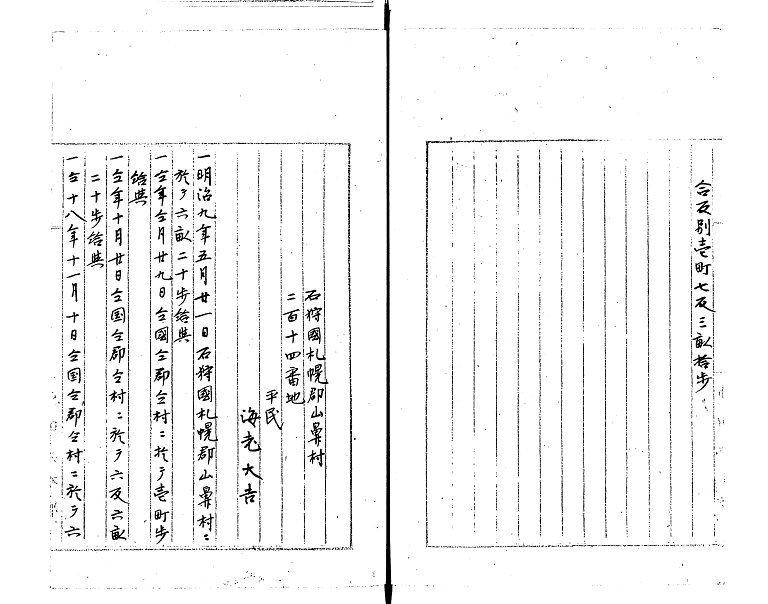 合反別壱町七反三畝拾歩
石狩國札幌郡山鼻村
二百十四番地
平民
海老大吉
一明治九年五月廿一日石狩國札幌郡山鼻村ニ
於テ六畝二十歩給與
一仝年仝月廿九日仝國仝郡仝村ニ於テ壱町歩
給與
一仝年十月廿日仝国仝郡仝村ニ於テ六反六畝
二十歩給與
一仝十八年十一月十日仝国仝郡仝村ニ於テ六